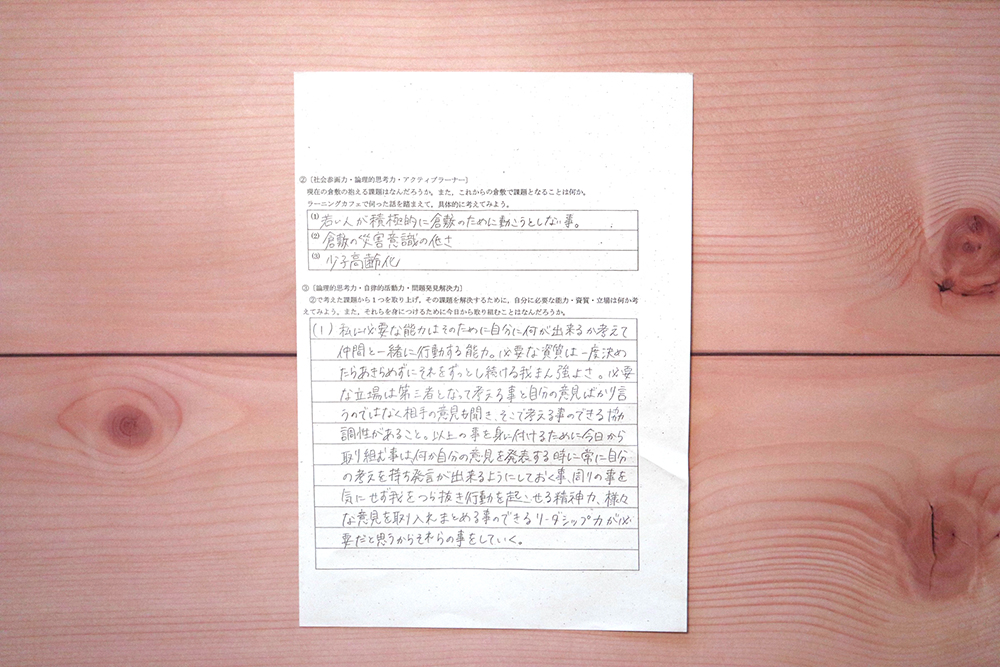 ②〔社会参画力・論理的思考力・アクティブラーナー〕
現在の倉敷の抱える課題はなんだろうか。また、これからの倉敷で課題となることは何か。
ラーニングカフェで伺った話を踏まえて、具体的に考えてみよう。
(1) 若い人が積極的に倉敷のために動こうとしない事。
(2) 倉敷の災害意識の低さ
(3) 少子高齢化
③〔論理的思考力・自律的活動力・問題発見解決力〕
②で考えた課題から1つを取り上げ、その課題を解決するために、自分に必要な能力・資質・立場は何か考
えてみよう。また、それらを身につけるために今日から取り組むことはなんだろうか。
(1) 私に必要な能力はそのために自分に何が出来るか考えて
仲間と一緒に行動する能力。必要な資質は一度決め
たらあきらめずにそれをずっとし続ける我まん強よさ。必要
な立場は第三者となって考える事と自分の意見ばかり言
うのではなく相手の意見も聞き、そこで考える事のできる協
調性があること。以上の事を身に付けるために今日から
取り組む事は、何か自分の意見を発表する時に常に自分
の考えを持ち発言が出来るようにしておく事、周りの事を
気にせず我をつら抜き行動を起こせる精神力、様々
な意見を取り入れまとめる事のできるリーダシップ力が必
要だと思うからそれらの事をしていく。